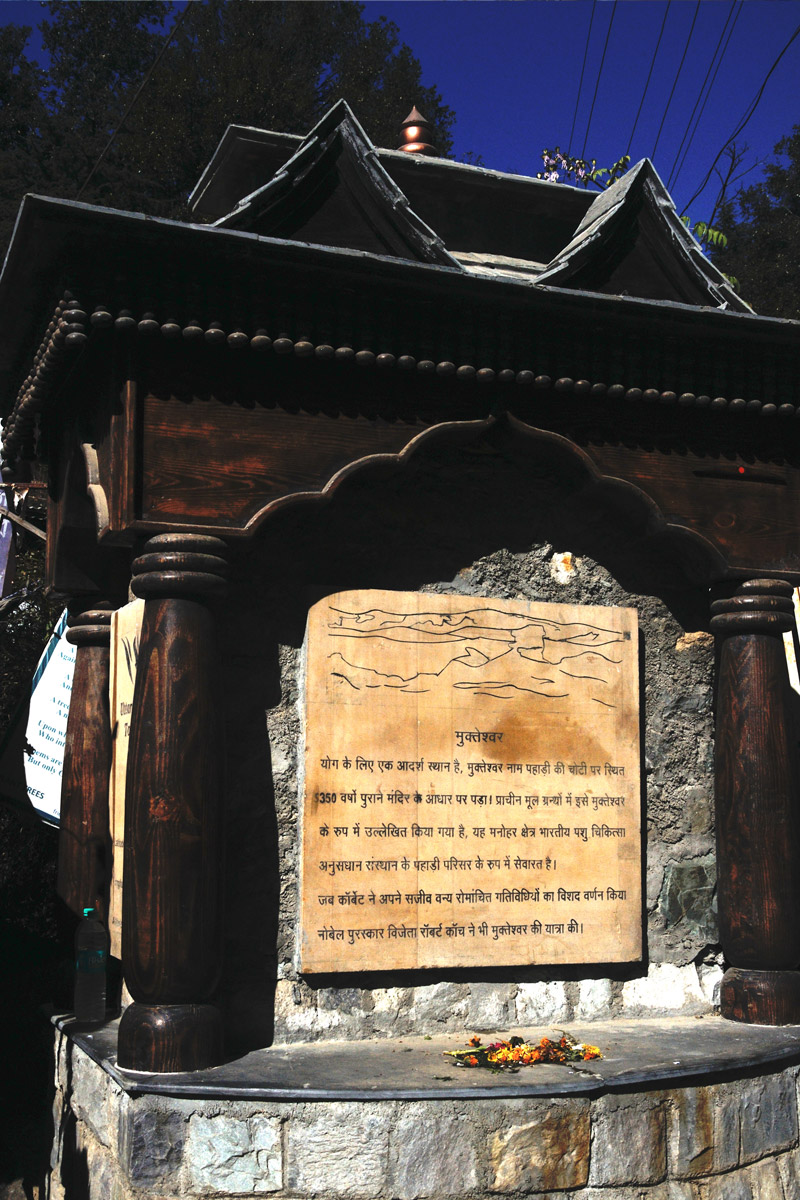 मुक्तेश्वर
योग के लिए एक आदर्श स्थान है, मुक्तेश्वर नाम पहाड़ी की चोटी पर स्थित
350 वर्षो पुराने मंदिर के आधार पर पडा। प्राचीन मूल ग्रन्थों में इसे मुक्तेश्वर
के रुप में उल्लेखित किया गया है, यह मनोहर क्षेत्र भारतीय पशु चिकित्सा
अनुसधान संस्थान के पहाड़ी परिसर के रुप में सेवारत है।
जब कॉर्बेट ने अपने सजीव वन्य रोमांचित गतिविध्यिों का विशद वर्णन किया
नोबेल पुरस्कार विजेता रॉबर्ट कॉच ने भी मुक्तेश्वर की यात्रा की।
A tree
Upon w
Who int
But only
REES